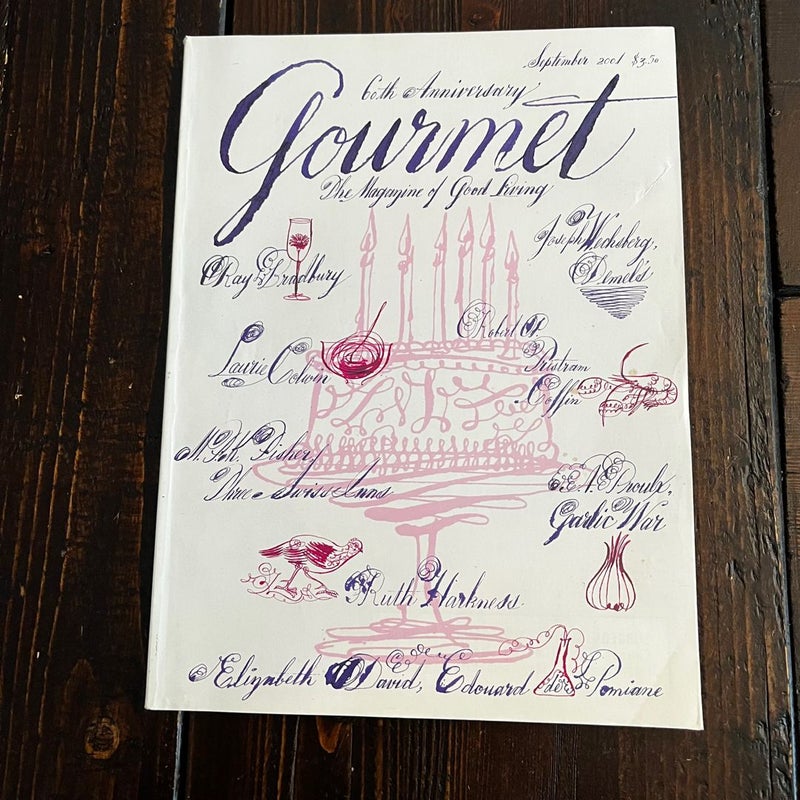 September 2001 $3.50
60th Anniversary
Gourmet
The Magazine of Good Living
Ray Bradbury
Joseph Wechsberg,
Demel's
Laurie Colwin
Robert P.
Tristram
Coffin
M.F.K. Fisher,
Three Swiss Inns
E.A. Proulx,
Garlic War
Ruth Harkness
Elizabeth David, Edouard de Pomiane